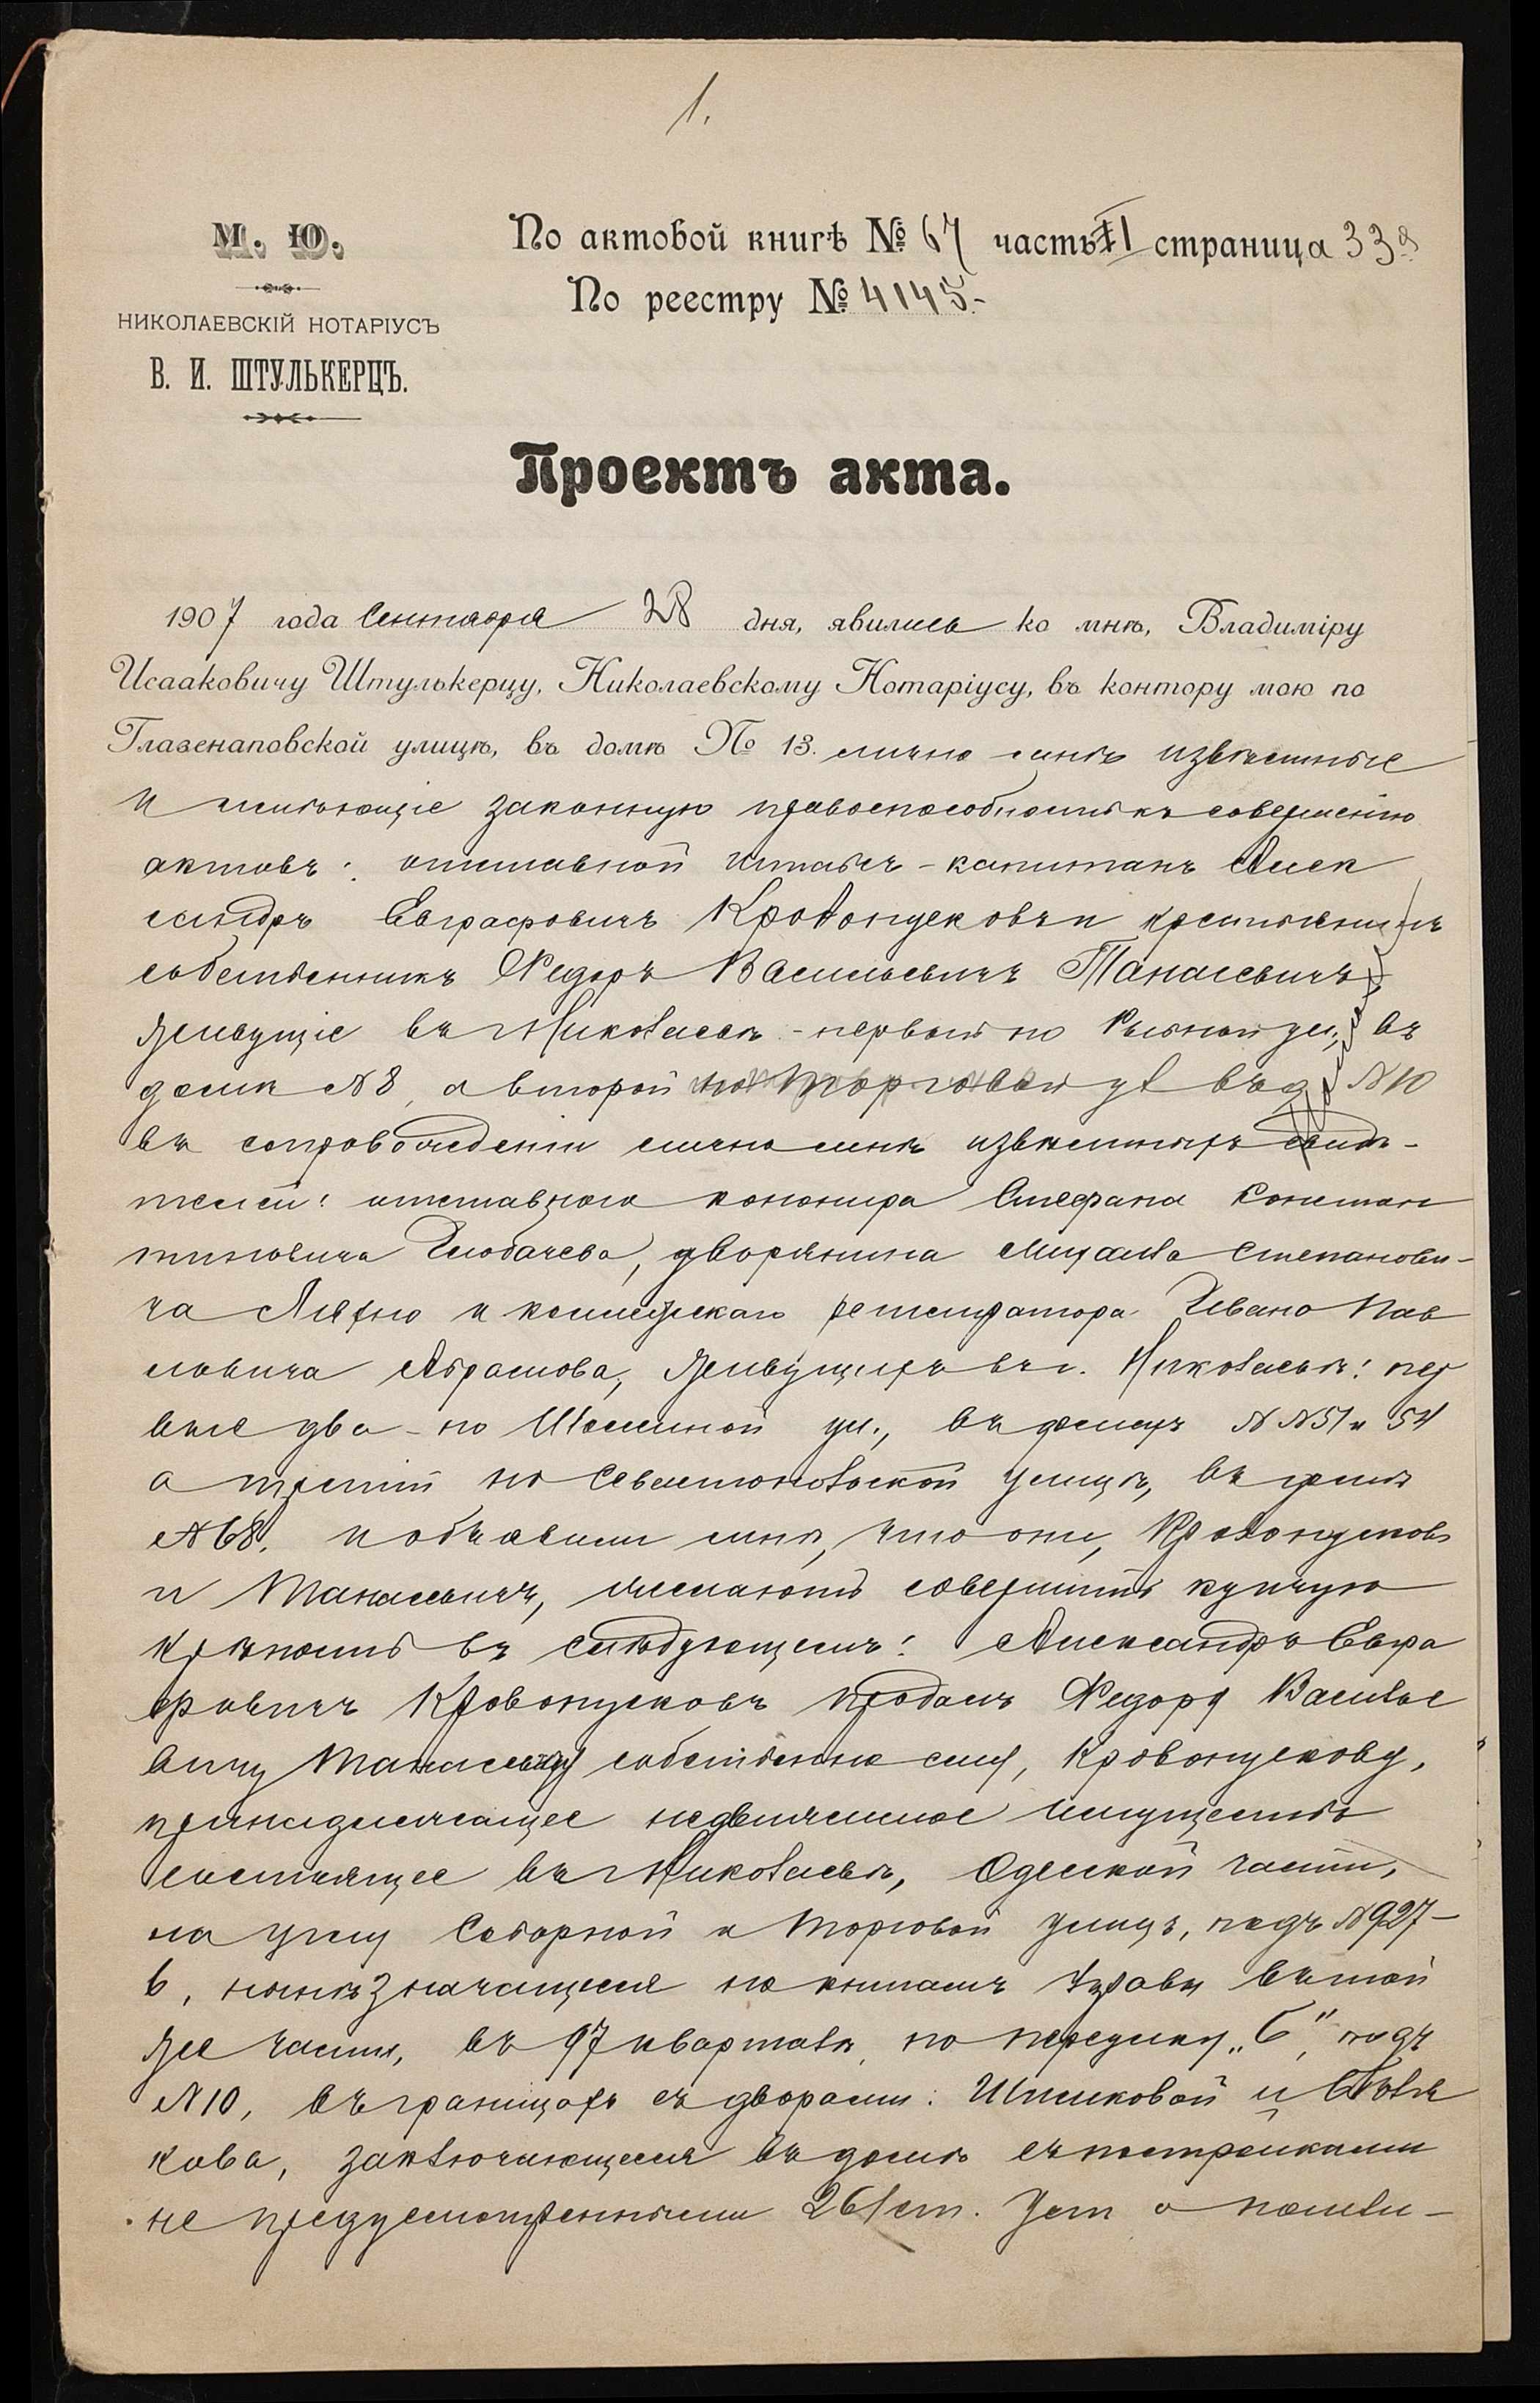 1.
М. Ю.
НИКОЛАЕВСКІЙ НОТАРІУСЪ
В. И. ШТУЛЬКЕРЦЪ.
По актовой книгѣ № 67 часть II страница 33
По реестру № 4145-
Проектъ акта.
1907 года Сентября 28 дня, явились ко мнѣ, Владиміру
Исааковичу Штулькерцу, Николаевскому Нотаріусу, въ контору мою по
Глазенаповской улицѣ, въ домѣ № 13. лично мнѣ извѣстные
и имѣющіе законную правоспособность къ совершенію
актовъ: отставной штабсъ-капитанъ Алек
сандръ Евграфовичъ Кровопусковъ и крестьянинъ
собственникъ Ѳедоръ Васильевичъ Танасевичъ,
живущіе въ г. Николаевѣ - первый по ул., въ
домѣ № 8, а второй по Торговой ул въ д № 10
въ сопровожденіи лично мнѣ извѣстныхъ свидѣ-
телей: отставного канонира Стефана Констан
тиновича, дворянина Михаила Степанови-
ча и коллежскаго регистратора Ивана Пав
ловича Абрамова, живущихъ въ г. Николаевѣ: пер
вые два - по ул., въ домахъ №№ 51 и 54
а третій по Севастопольской улицѣ, въ домѣ
№ 68, и объявили мнѣ, что они, Кровопусковъ
и Танасевичъ, желаютъ совершить купчую
крѣпость въ слѣдующемъ: Александръ Евгра
фовичъ Кровопусковъ продалъ Ѳедору Василье
вичу Танасевичу собственно ему, Кровопускову,
принадлежащее недвижимое имущество
состоящее въ г. Николаевѣ, Одесской части,
на углу Соборной и Торговой улицъ, подъ № 927-
6, нынѣ значащееся по книгамъ Управы въ той
же части, въ 97 кварталѣ, по переулку „С“, подъ
№ 10, въ границахъ съ дворами: Шишковой и Бѣля
кова, заключающееся въ домѣ съ постройками
не предусмотренными 261 ст. Уст о пошли-